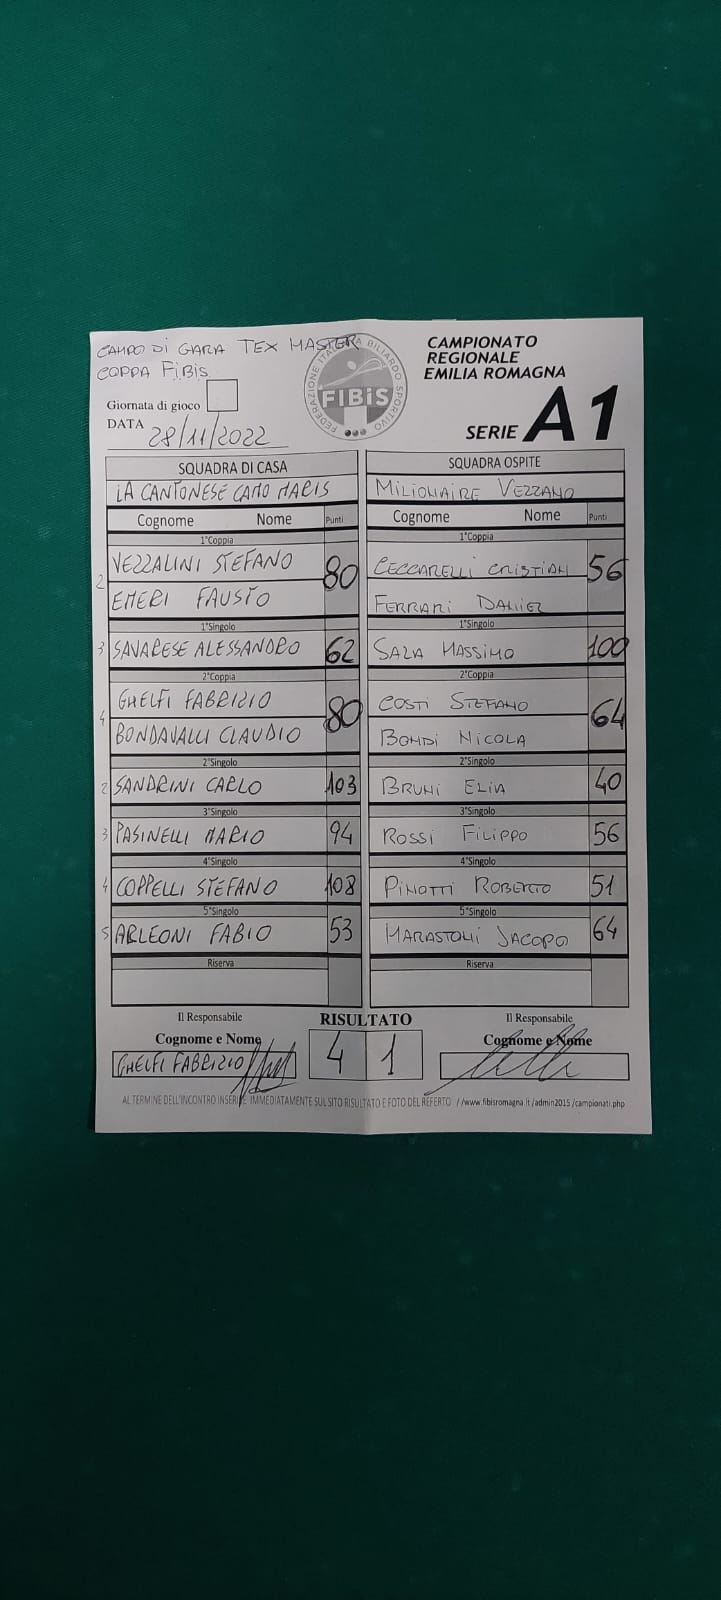 CAMPO DI GARA TEX MASTER
COPPA FIBIS
FEDERAZIONE ITALIANA BILIARDO SPORTIVO
FIBiS
CAMPIONATO
REGIONALE
EMILIA ROMAGNA
SERIE A1
Giornata di gioco
DATA 28/11/2022
SQUADRA DI CASA SQUADRA OSPITE
LA CANTONESE CAMO MARIS MILIONAIRE VEZZANO
Cognome Nome Punti Cognome Nome Punti
1°Coppia 1°Coppia
2 VEZZALINI STEFANO 80 CECCARELLI CRISTIAN 56
EMERI FAUSTO FERRARI DANIEL
1°Singolo 1°Singolo
3 SAVARESE ALESSANDRO 62 SALA MASSIMO 100
2°Coppia 2°Coppia
4 GHELFI FABRIZIO 80 COSTI STEFANO 64
BONDAVALLI CLAUDIO BONDI NICOLA
2°Singolo 2°Singolo
2 SANDRINI CARLO 103 BRUNI ELIA 40
3°Singolo 3°Singolo
3 PASINELLI MARIO 94 ROSSI FILIPPO 56
4°Singolo 4°Singolo
4 COPPELLI STEFANO 108 PINOTTI ROBERTO 51
5°Singolo 5°Singolo
5 ARLEONI FABIO 53 MARASTONI JACOPO 64
Riserva Riserva
Il Responsabile RISULTATO Il Responsabile
Cognome e Nome 4 1 Cognome e Nome
GHELFI FABRIZIO
AL TERMINE DELL'INCONTRO INSERIRE IMMEDIATAMENTE SUL SITO RISULTATO E FOTO DEL REFERTO //www.fibisromagna.it/admin2015/campionati.php